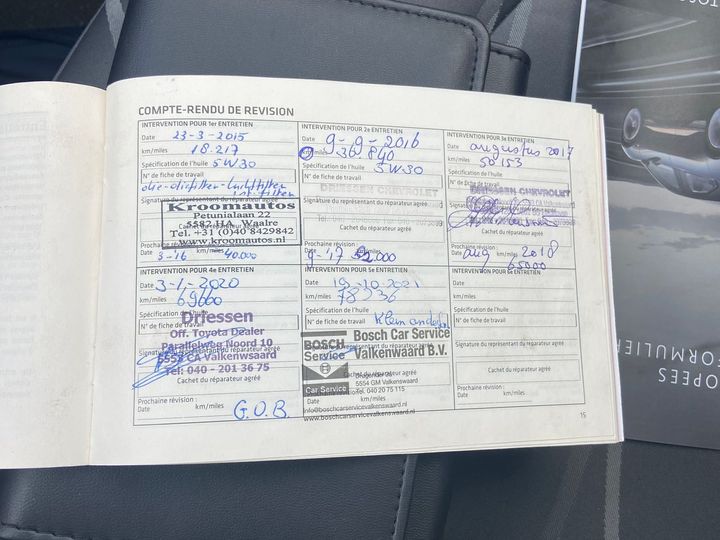 COMPTE-RENDU DE REVISION
INTERVENTION POUR 1er ENTRETIEN
Date 23-3-2015
km/miles 18.217
Spécification de l'huile 5W30
N° de fiche de travail
olie-oliefilter-luchtfilter
Signature du représentant du réparateur agréé
Kroomautos
Petunialaan 22
5582 HA Waalre
Tel. +31 (0)40 8429842
www.kroomautos.nl
Cachet du réparateur agréé
Prochaine révision :
Date 3-'16 km/miles 40.000
INTERVENTION POUR 2e ENTRETIEN
Date 9-9-2016
km/miles 36.840
Spécification de l'huile 5W30
N° de fiche de travail
DRIESSEN CHEVROLET
Signature du représentant du réparateur agréé
Cachet du réparateur agréé
Prochaine révision :
Date 9-'17 km/miles 52.000
INTERVENTION POUR 3e ENTRETIEN
Date augustus 2017
km/miles 50153
Spécification de l'huile
N° de fiche de travail
DRIESSEN CHEVROLET
Signature du représentant du réparateur agréé
Cachet du réparateur agréé
Prochaine révision :
Date aug 2018 km/miles 65000
INTERVENTION POUR 4e ENTRETIEN
Date 3-1-2020
km/miles 69660
Spécification de l'huile
N° de fiche de travail
Driessen
Off. Toyota Dealer
Parallelweg Noord 10
5554 CA Valkenswaard
Tel: 040 - 201 36 75
Signature du représentant du réparateur agréé
Cachet du réparateur agréé
Prochaine révision :
Date km/miles
G.O.B.
INTERVENTION POUR 5e ENTRETIEN
Date 19-10-2021
km/miles 78936
Spécification de l'huile
N° de fiche de travail Klein onderh
BOSCH
Service
Car Service
Bosch Car Service
Valkenwaard B.V.
5554 GM Valkenswaard
tel. 040 20 75 115
info@boschcarservicevalkenswaard.nl
www.boschcarservicevalkenswaard.nl
INTERVENTION POUR 6e ENTRETIEN
Date
km/miles
Spécification de l'huile
N° de fiche de travail
Signature du représentant du réparateur agréé
Cachet du réparateur agréé
Prochaine révision :
Date km/miles
15